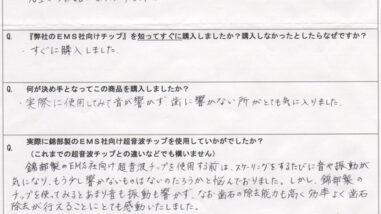 Q. 『弊社のEMS社向けチップ』を知ってすぐに購入しましたか?購入しなかったとしたらなぜですか?
・すぐに購入しました.
Q. 何が決め手となってこの商品を購入しましたか?
・実際に使用してみて音が響かず、歯に響かない所がとても気に入りました.
Q. 実際に錦部製のEMS社向け超音波チップを使用していかがでしたか?
(これまでの超音波チップとの違いなどでも構いません)
錦部製のEMS社向け超音波チップを使用する前は、スケーリングをするたびに音や振動が
気になり、もう少し響かないものはないのだろうかと悩んでおりました。しかし、錦部製の
チップを使ってみるとあまり音も振動も響かず、なお歯石の除去能力も高く効率よく歯石
除去が行えることにとても感動いたしました。